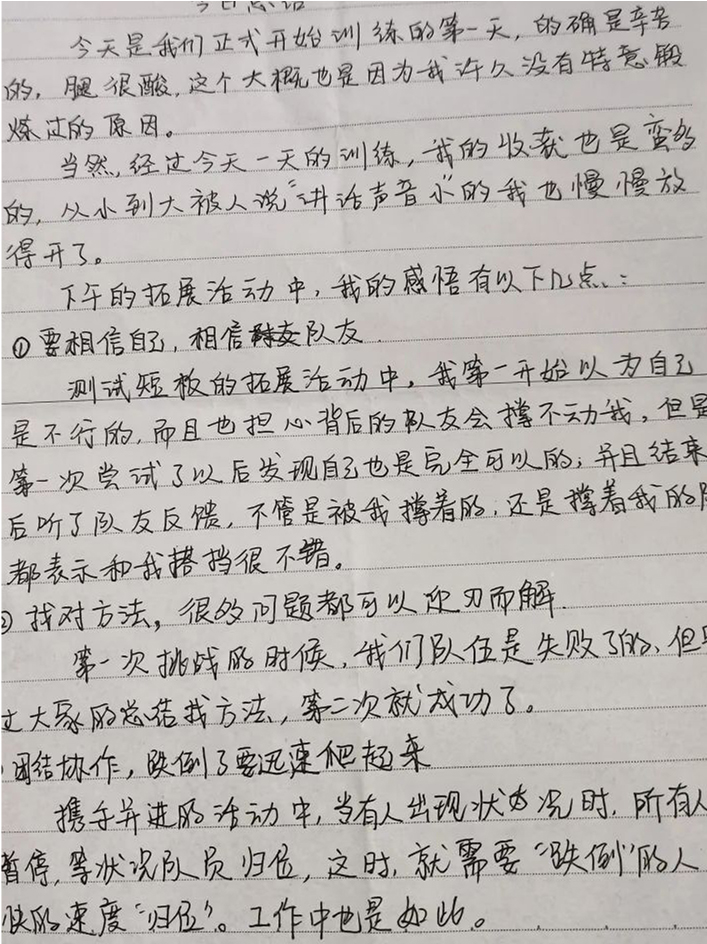 今日总结
今天是我们正式开始训练的第一天，的确是辛苦
的，腿很酸，这个大概也是因为我许久没有特意锻
炼过的原因。
当然，经过今天一天的训练，我的收获也是蛮多
的，从小到大被人说“讲话声音小”的我也慢慢放
得开了。
下午的拓展活动中，我的感悟有以下几点：
①要相信自己，相信队友
测试短板的拓展活动中，我第一开始以为自己
是不行的，而且也担心背后的队友会撑不动我，但是
第一次尝试了以后发现自己也是完全可以的；并且结束
后听了队友反馈，不管是被我撑着的，还是撑着我的
都表示和我搭档很不错。
②找对方法，很多问题都可以迎刃而解.
第一次挑战的时候，我们队伍是失败了的，但
过大家的总结找方法，第二次就成功了。
团结协作，跌倒了要迅速爬起来
携手并进的活动中，当有人出现状况时，所有人
暂停，等状况队员归位，这时，就需要“跌倒”的人
快的速度“归位”。工作中也是如此。